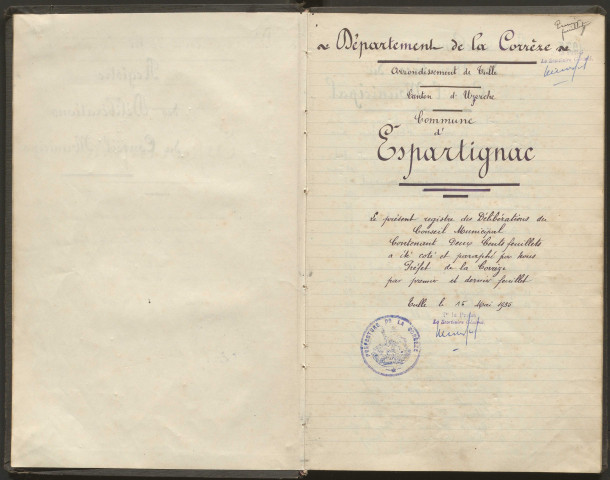 Premier
feuillet
~ Département de la Corrèze ~
Le Secrétaire
Arrondissement de Tulle
Canton d'Uzerche
Commune
d'
Espartignac
Le présent registre des Délibérations du
Conseil Municipal
Contenant Deux Cents feuillets
a été coté et paraphé par nous
Préfet de la Corrèze
par premier et dernier feuillet
Tulle le 15 Mai 1936
Le Secrétaire Général
PRÉFECTURE DE LA CORRÈZE